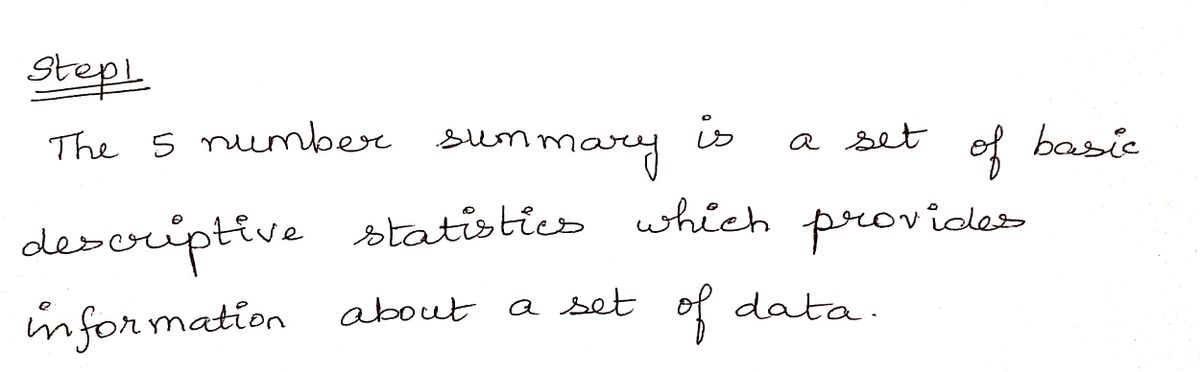 Step1
The 5 number summary is a set of basic
descriptive statistics which provides
information about a set of data.